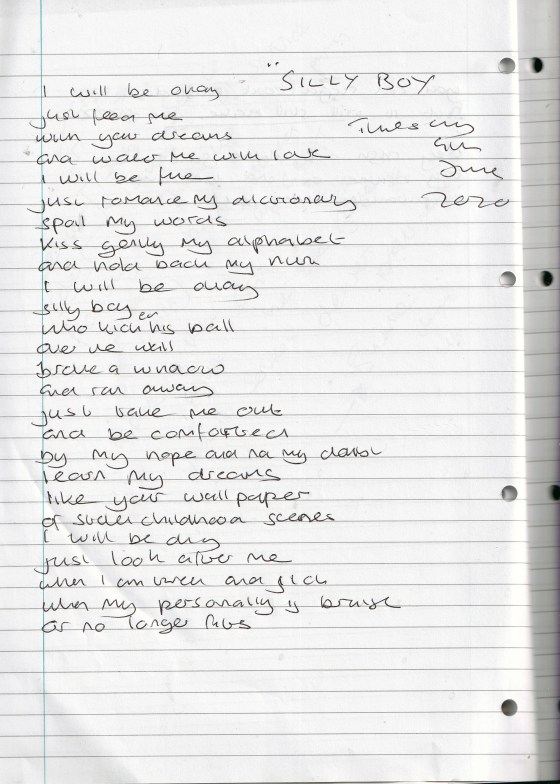 SILLY BOY
Tuesday
9th
June
2020
I will be okay
just feed me
with your dreams
and water me with love
I will be fine
just romance my dictionary
spoil my words
kiss gently my alphabet
and hold back my
I will be okay
silly boy
who kicken his ball
over the wall
broke a window
and ran away
just take me out
and be comforted
by my hope and not my doubt
learn my dreams
like your wallpaper
of childhood scenes
I will be okay
just look after me
when I am weak and sick
when my personality is bruise
or no longer fits